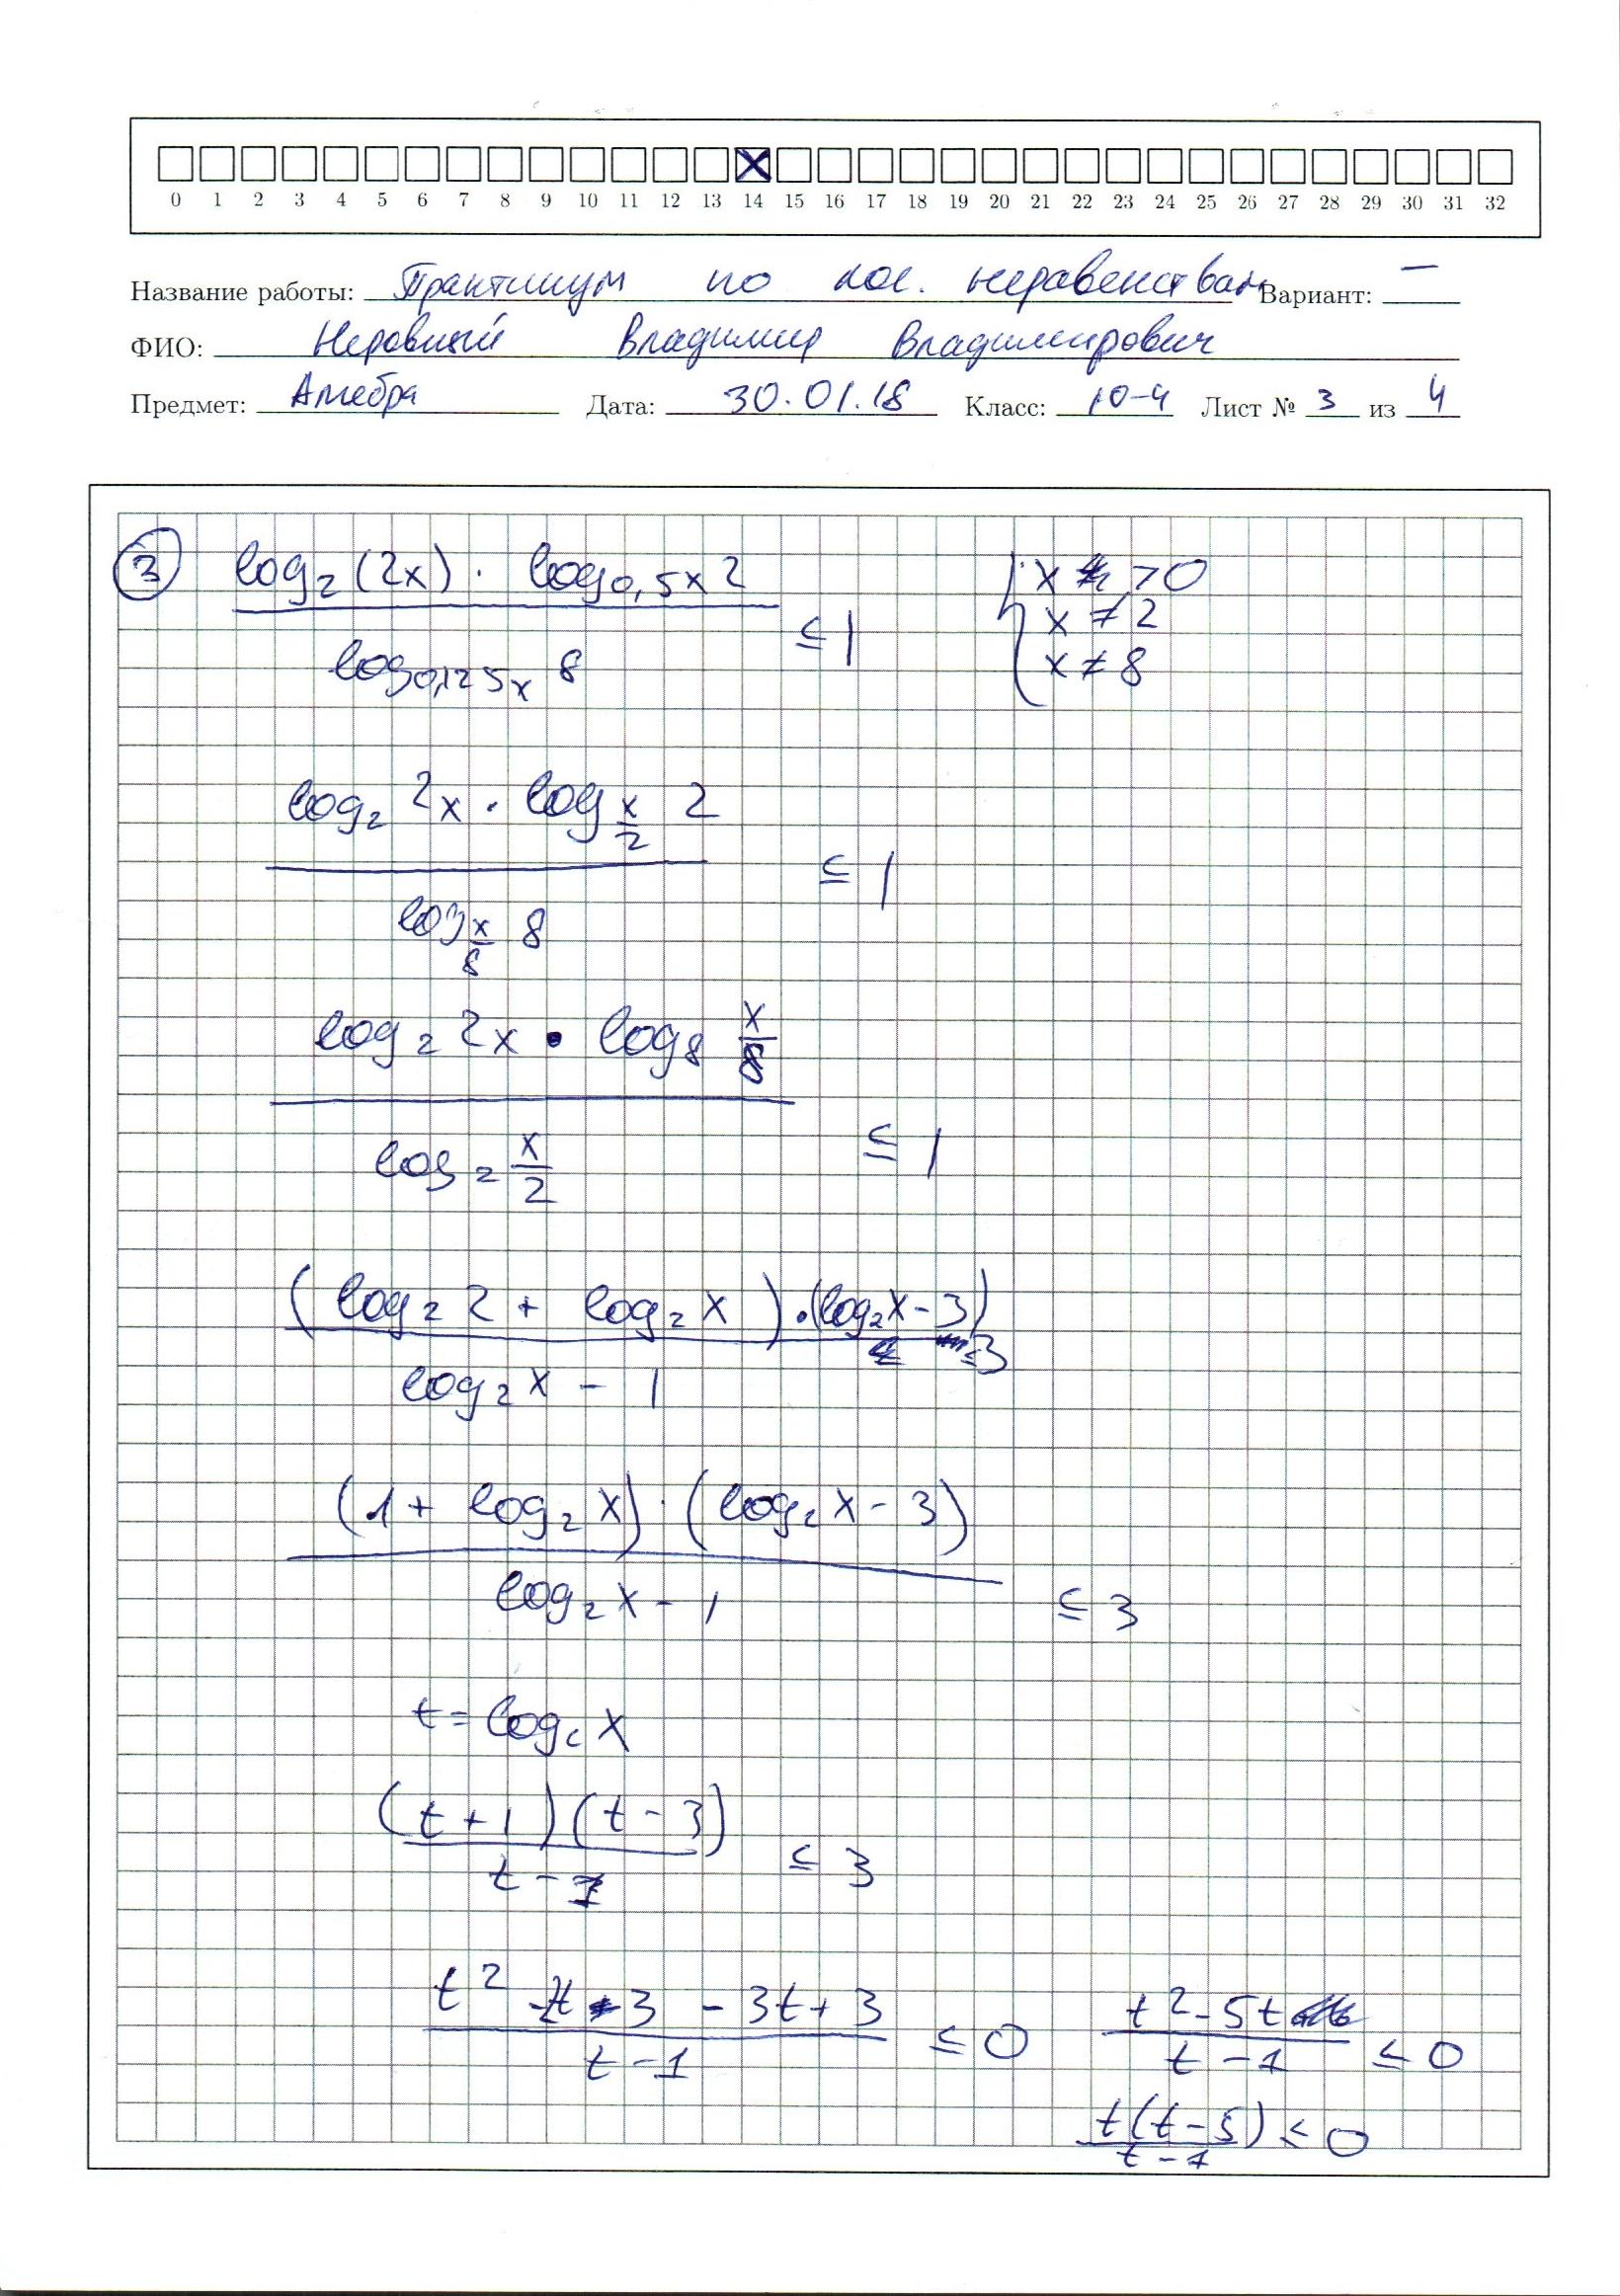 0 1 2 3 4 5 6 7 8 9 10 11 12 13 14 15 16 17 18 19 20 21 22 23 24 25 26 27 28 29 30 31 32
Название работы: Практикум по лог. неравенствам Вариант: —
ФИО: Владимир Владимирович
Предмет: Алгебра Дата: 30.01.18 Класс: 10-4 Лист № 3 из 4
③ log₂(2x) · log₀,₅ₓ 2 / log₀,₁₂₅ₓ 8 ≤ 1
{ x > 0
x ≠ 2
x ≠ 8
log₂ 2x · log_{x/2} 2 / log_{x/8} 8 ≤ 1
log₂ 2x · log₈ x/8 / log₂ x/2 ≤ 1
(log₂ 2 + log₂ x) · (log₂ x - 3) / log₂ x - 1 ≤ 3
(1 + log₂ x) · (log₂ x - 3) / log₂ x - 1 ≤ 3
t = log₂ x
(t + 1)(t - 3) / t - 1 ≤ 3
t² - 2t - 3 - 3t + 3 / t - 1 ≤ 0 t² - 5t / t - 1 ≤ 0
t(t - 5) / t - 1 ≤ 0